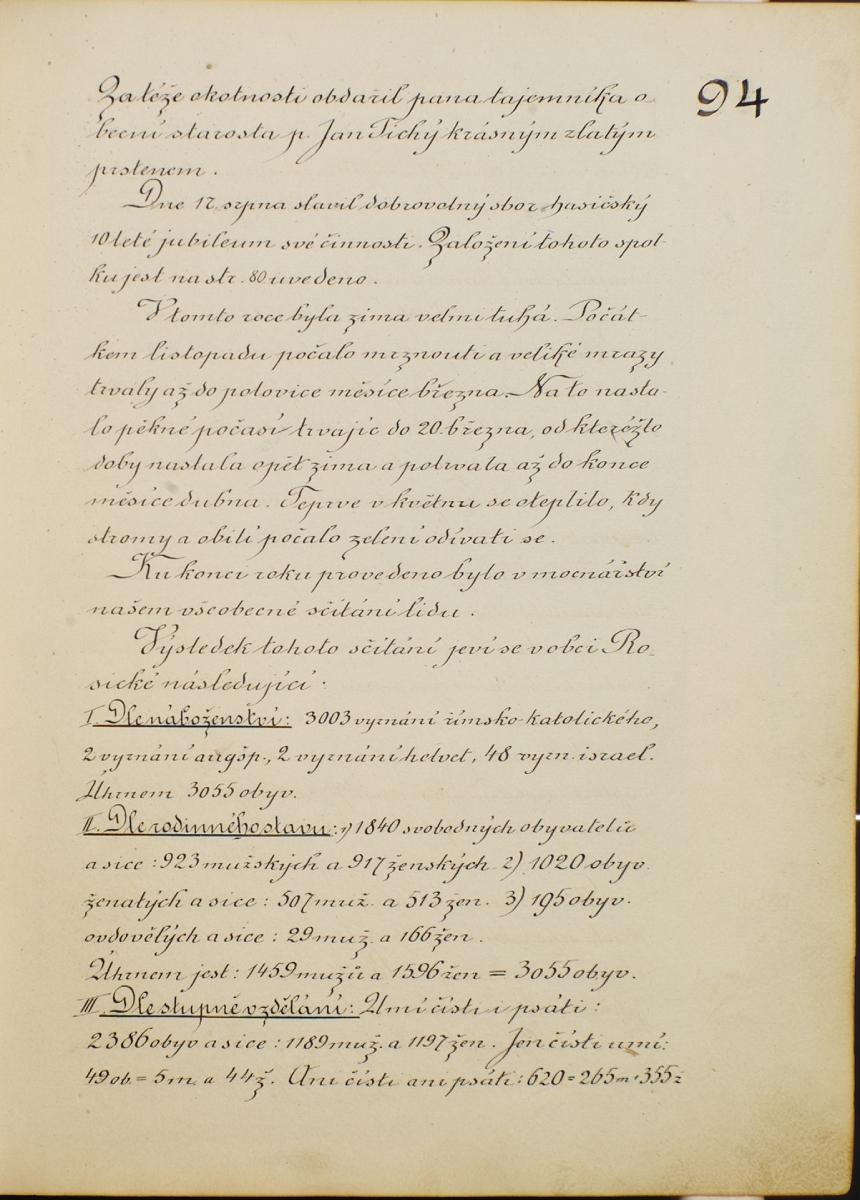 94
Za téže okolnosti obdařil pana tajemníka o-
becní starosta p. Jan Tichý krásným zlatým
prstenem.
Dne 17. srpna slavil dobrovolný sbor hasičský
10 leté jubileum své činnosti. Založení tohoto spol-
ku jest na str. 80 uvedeno.
V tomto roce byla zima velmi tuhá. Počát-
kem listopadu počalo mrznouti a veliké mrazy
trvaly až do polovice měsíce března. Na to nasta-
lo pěkné počasí trvajíc do 20. března, od kteréžto
doby nastala opět zima a potrvala až do konce
měsíce dubna. Teprve v květnu se oteplilo, kdy
stromy a obilí počalo zelení odívati se.
Ku konci roku provedeno bylo v mocnářství
našem všeobecné sčítání lidu.
Výsledek tohoto sčítání jeví se v obci Ro-
sické následující:
I. Dle náboženství: 3003 vyznání římsko-katolického,
2 vyznání augšp., 2 vyznání helvet, 48 vyzn. israel.
Úhrnem 3055 obyv.
II. Dle rodinného stavu: 1) 1840 svobodných obyvatelů
a sice: 923 mužských a 917 ženských 2) 1020 obyv.
ženatých a sice: 507 muž. a 513 žen. 3) 195 obyv.
ovdovělých a sice: 29 muž. a 166 žen.
Úhrnem jest: 1459 mužů a 1596 žen = 3055 obyv.
III. Dle stupně vzdělání: Umí čísti i psáti:
2386 obyv a sice: 1189 muž. a 1197 žen. Jen čísti umí:
49 ob. = 5 m. a 44 ž. Ani čísti ani psáti: 620 = 265 m + 355 ž